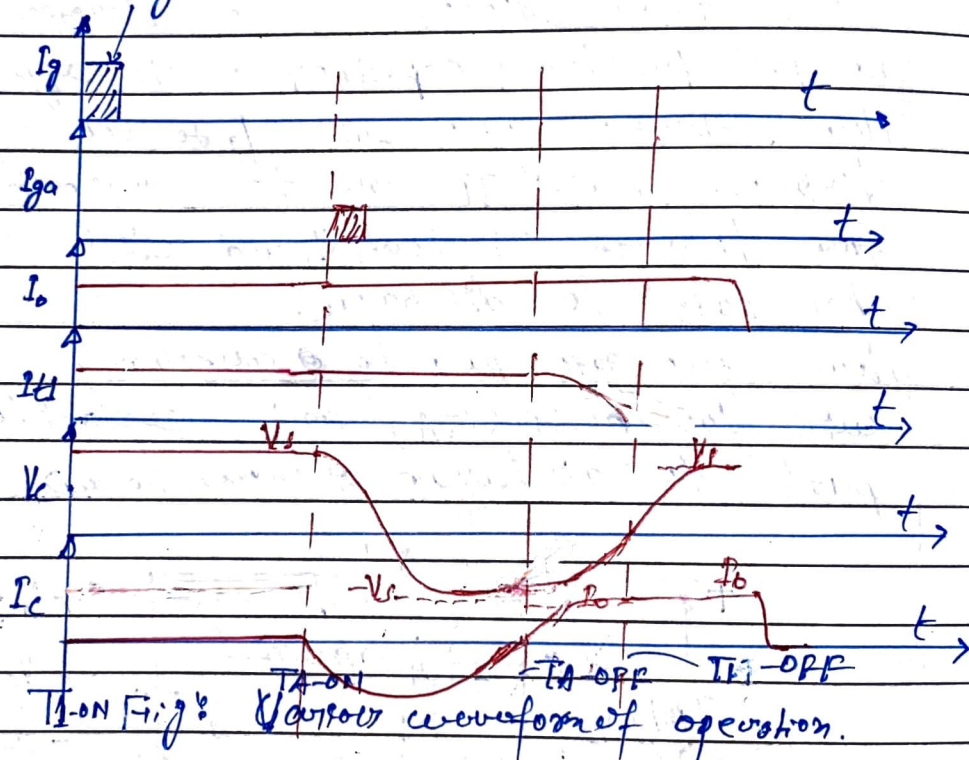 Ig
t
Iga
t
Io
t
It1
t
Vs
Vs
Vc
t
-Vs
Io
Io
Ic
t
TA-ON
TA-OFF
T1-OFF
T1-ON Fig: Various waveform of operation.